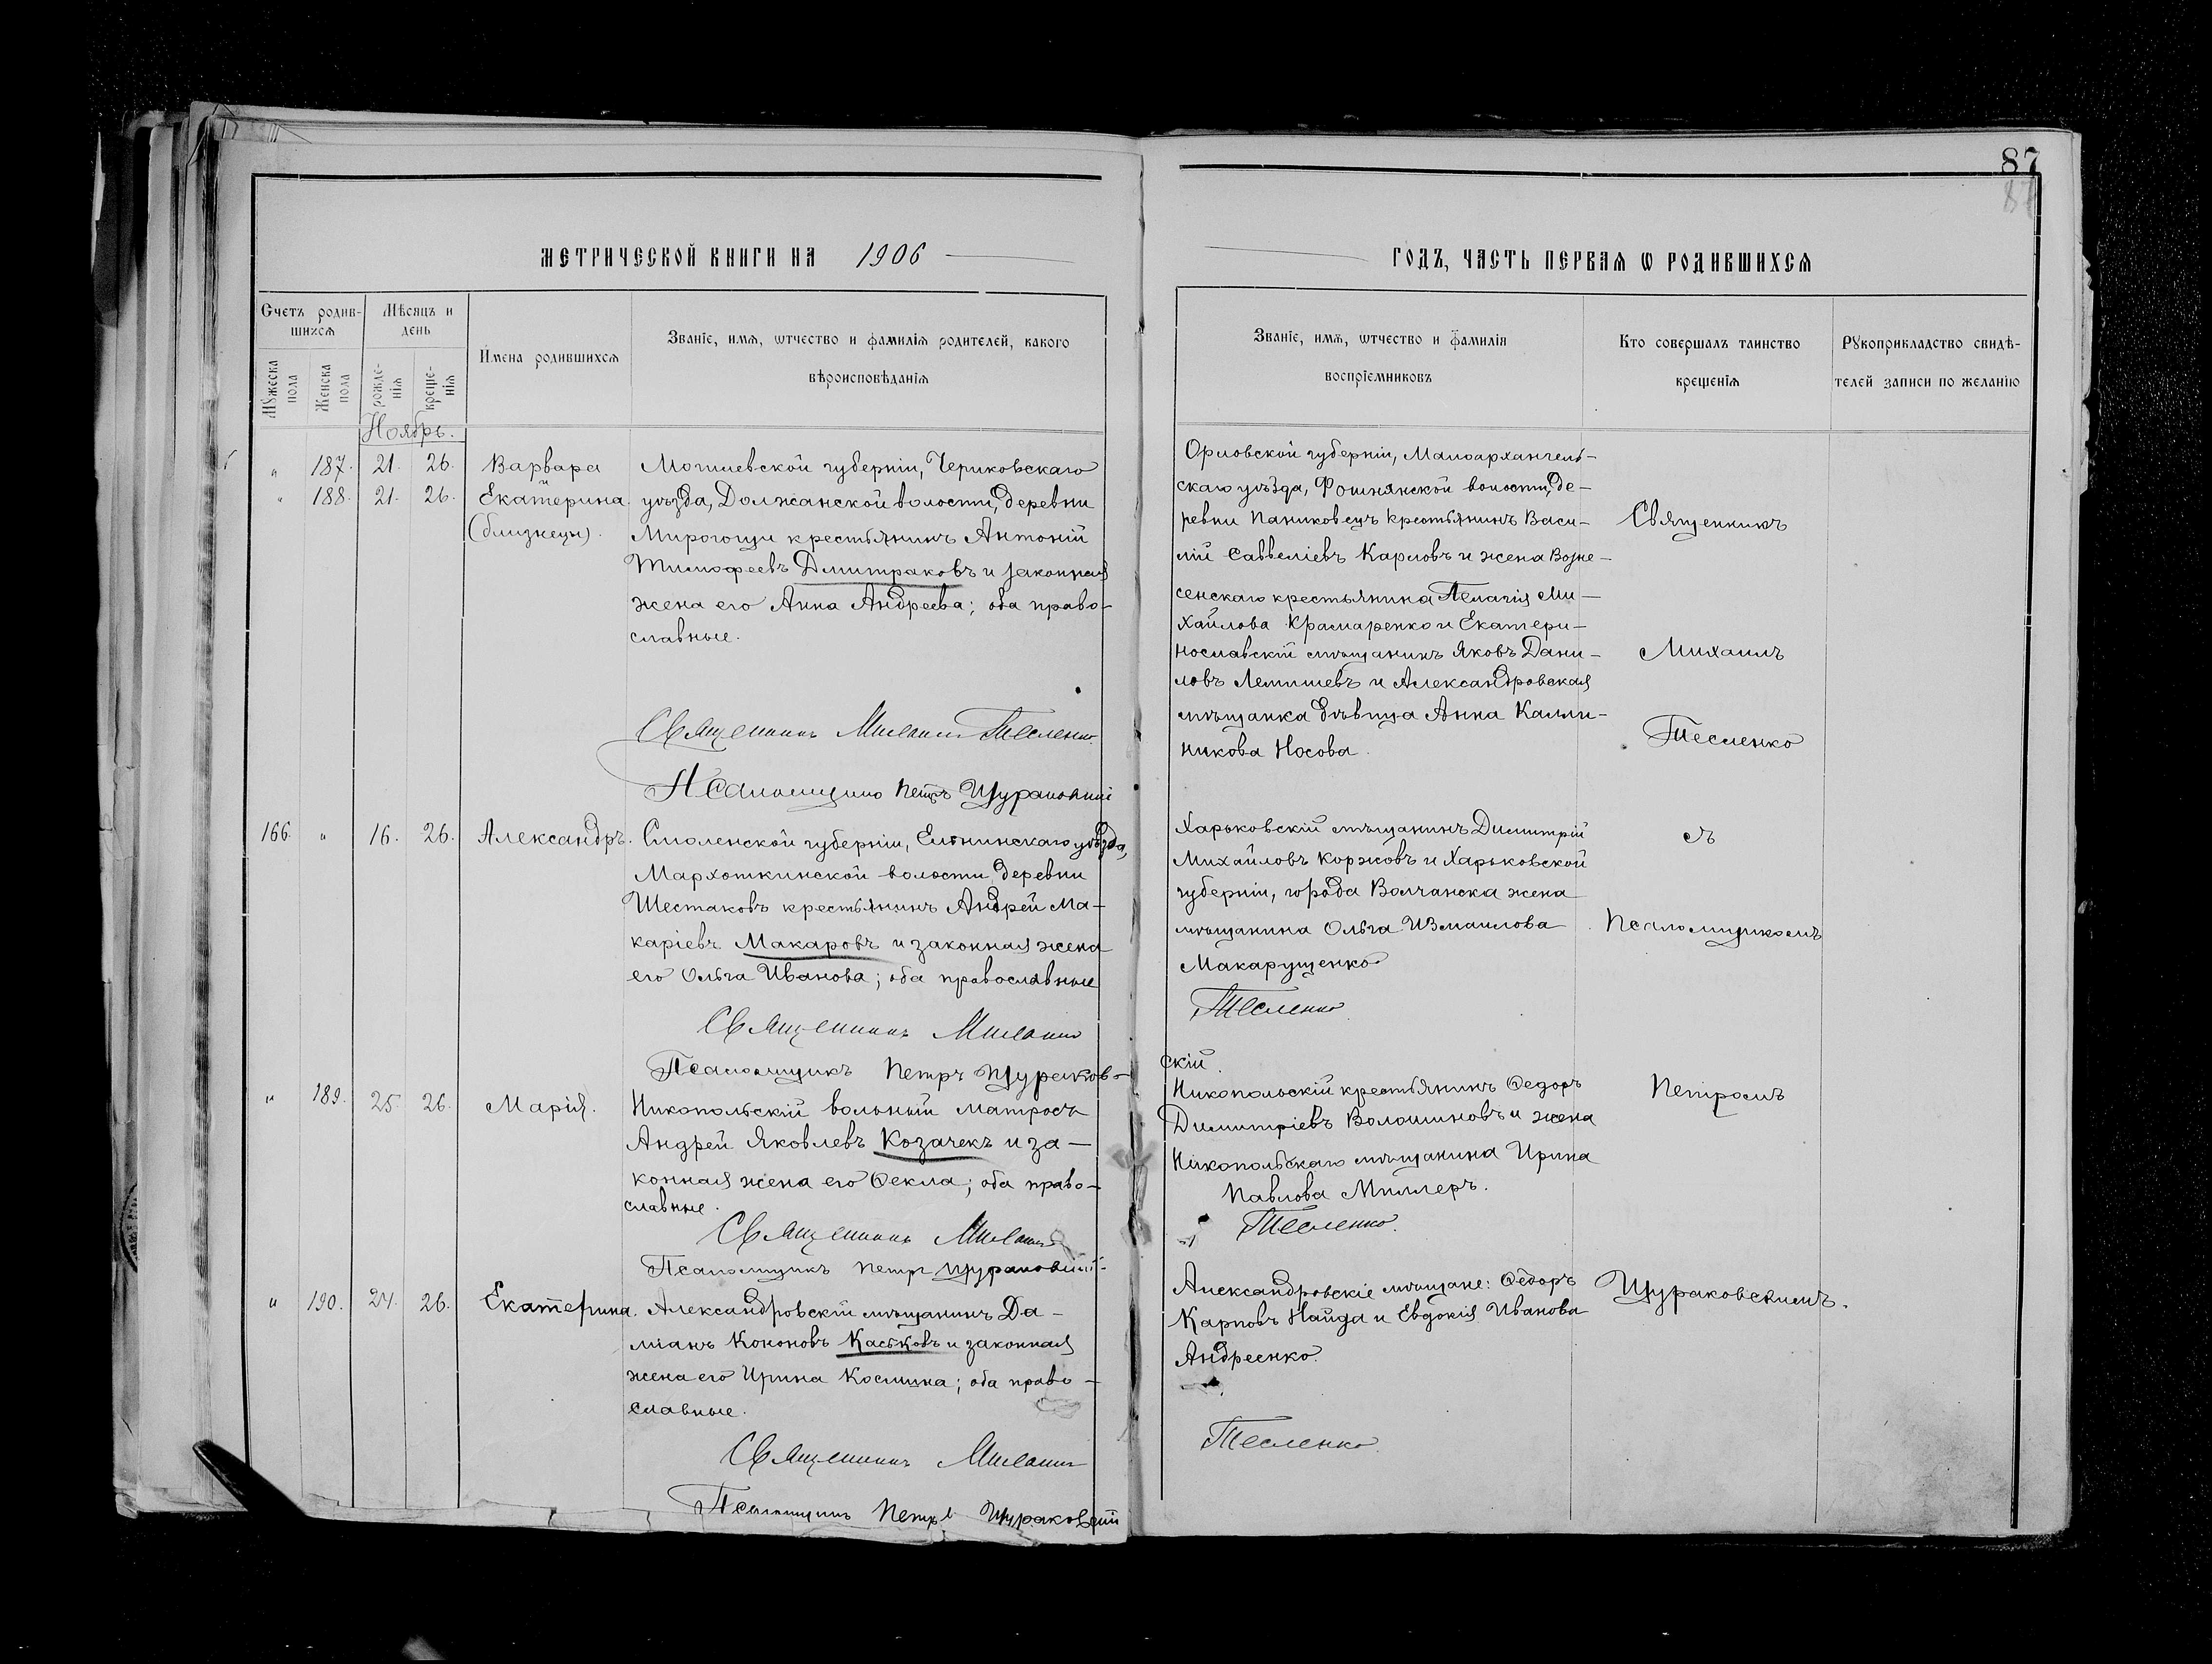 87
87
МЕТРИЧЕСКОЙ КНИГИ НА 1906
ГОДЪ, ЧАСТЬ ПЕРВАЯ Ѡ РОДИВШИХСЯ
Счетъ родив-
шихся
Мѣсяцъ и
день
Имена родившихся
Званіе, имя, ѡтчество и фамилія родителей, какого
вѣроисповѣданія
Мꙋжеска пола
Женска пола
рожде-
нія
креще-
нія
Званіе, имя, ѡтчество и фамилія
воспріемниковъ
Кто совершалъ таинство
крещенія
Рꙋкоприкладство свидѣ-
телей записи по желанію
Ноябрь.
" 187. 21. 26. Варвара
и
" 188. 21. 26. Екатерина
(близнецы).
Могилевской губерніи, Чериковскаго
уѣзда, Должанской волости, деревни
Мирогощи крестьянинъ Антоній
Тимофеевъ Дмитраковъ и законная
жена его Анна Андреева; оба право-
славные.
Священникъ Михаилъ Тесленко
Псаломщикъ Петръ Щураковскій
Орловской губерніи, Малоархангель-
скаго уѣзда, Фошнянской волости, де-
ревни Паниковецъ крестьянинъ Васи-
лій Саввеліевъ Карловъ и жена Возне-
сенскаго крестьянина Пелагія Ми-
хайлова Крамаренко и Екатери-
нославскій мѣщанинъ Яковъ Дани-
ловъ Лемишевъ и Александровская
мѣщанка дѣвица Анна Калли-
никова Носова.
Священникъ
Михаилъ
Тесленко
166. " 16. 26. Александръ.
Смоленской губерніи, Ельнинскаго уѣзда,
Мархоткинской волости, деревни
Шестаковъ крестьянинъ Андрей Ма-
каріевъ Макаровъ и законная жена
его Ольга Иванова; оба православные
Священникъ Михаилъ
Псаломщикъ Петръ Щураков-
Харьковскій мѣщанинъ Димитрій
Михайловъ Коржовъ и Харьковской
губерніи, города Волчанска жена
мѣщанина Ольга Измаилова
Макарущенко
Тесленко
скій.
съ
Псаломщикомъ
" 189. 25. 26. Марія.
Никопольскій вольный матросъ
Андрей Яковлевъ Козачекъ и за-
конная жена его Ѳекла; оба право-
славные.
Священникъ Михаилъ
Псаломщикъ Петръ Щураковскій
Никопольскій крестьянинъ Ѳедоръ
Димитріевъ Волошиновъ и жена
Никопольскаго мѣщанина Ирина
Павлова Миллеръ.
Тесленко.
Петромъ
" 190. 24. 26. Екатерина.
Александровскій мѣщанинъ Да-
міанъ Кононовъ Каськовъ и законная
жена его Ирина Косьмина; оба право-
славные.
Священникъ Михаилъ
Псаломщикъ Петръ Щураковскій
Александровскіе мѣщане: Ѳедоръ
Карповъ Найда и Евдокія Иванова
Андреенко.
Тесленко.
Щураковскимъ.